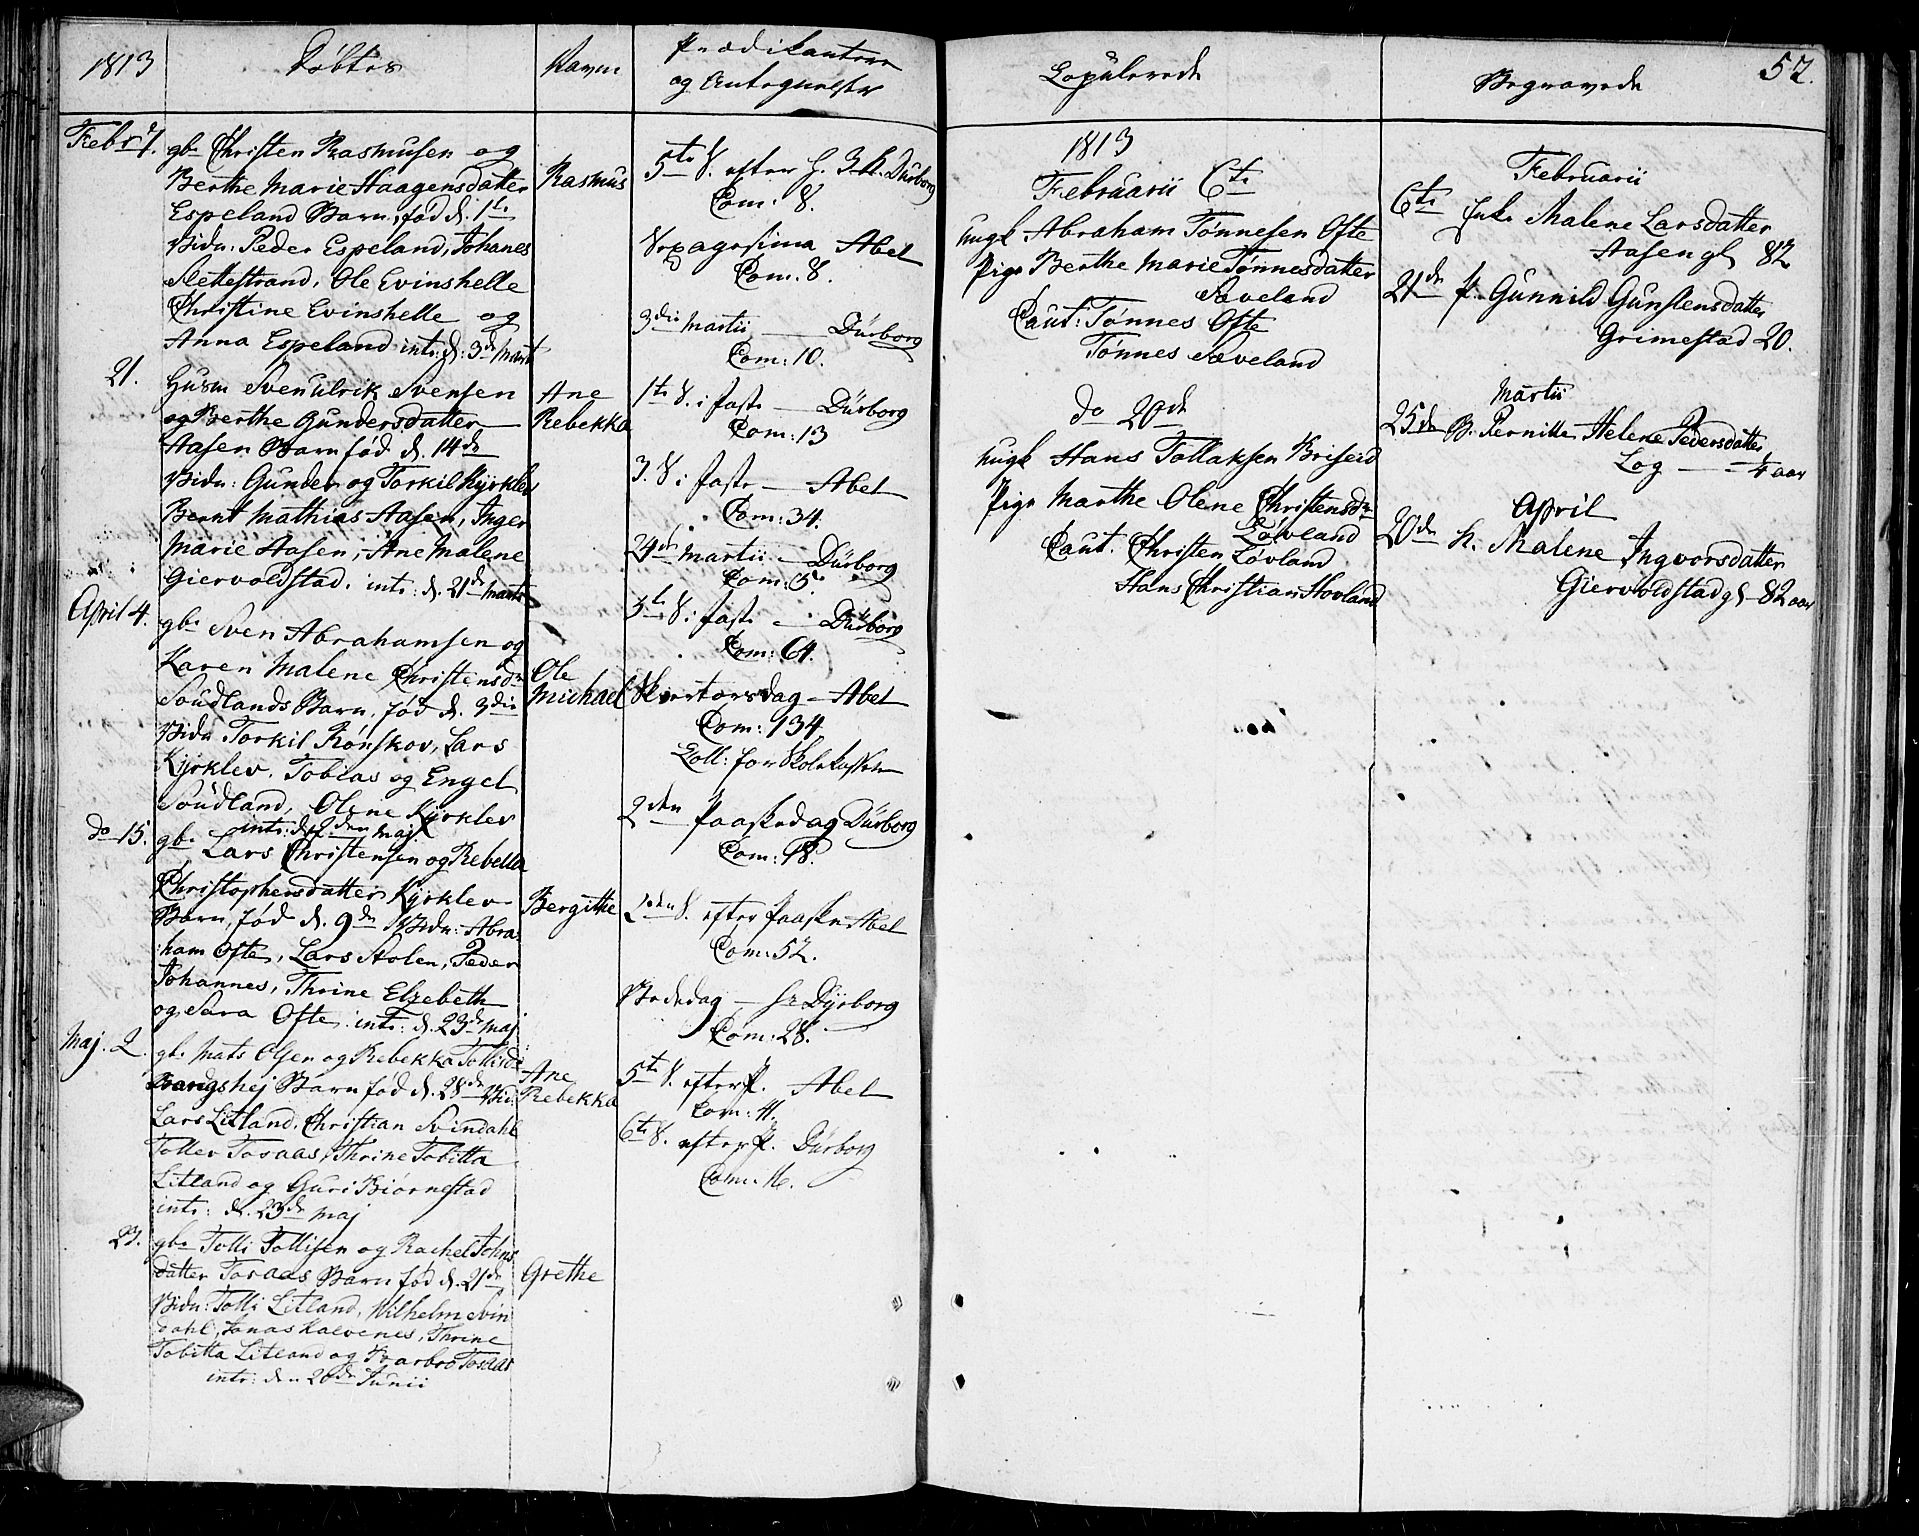 1813
Døbte
Navn
Prædikantere
og Autegnelser
Febr 7.
gbr Christen Rasmusen og
Berthe Marie Haagensdatter
Espeland Barn, fød d. 1te
Vidn: Peder Espeland, Johanes
Slettestrand, Ole Evinshelle
Christine Evinshelle og
Anna Espeland intr: d: 3de Martii
Rasmus
21.
Husm Sven Ulrik Svensen
og Berthe Gundersdatter
Aasen Barn fød d. 14de
Vidn: Gunder og Torkil Kyrklev
Bernt Mathias Aasen, Inger
Marie Aasen, Ane Malene
Giervoldstad. intr: d. 21de Martii
Ane
Rebekka
April 4.
gbr Sven Abrahamsen og
Karen Malene Christensdr
Soudlands Barn, fød d. 3die
Vidn Torkil Rønskov, Lars
Kyrklev, Tobias og Engel
Soudland, Olene Kyrklev
intr: d. 2den Maj
Ole
Michael
do 15.
gbr Lars Christensen og Rebekka
Christophersdatter Kyrklev
Barn, fød d. 9de Vidn: Abra-
ham Ofte, Lars Stolen, Peder
Johannes, Thrine Elzebeth
og Sara Ofte intr: d. 23de Maj
Bergithe
Maj. 2.
gbr Mats Olsen og Rebekka Tollisdr
Barn fød d. 28de Vid:
Lars Litland, Christian Svindahl
Toller Tosaas, Thrine Tobitta
Litland og Guri Biørnestad
intr: d. 23de Maj
Ane
Rebekka
23.
gbr Tolli Tollisen og Rachel Johns
datter Tosaas Barn fød d. 21de
Vidn: Tolli Litland, Wilhelm Svin
dahl, Jonas Kalvenes, Thrine
Tobitta Litland og Barbro Tosaas
intr: den 20de Junii
Grethe
5te S. efter H. 3 K. Dürborg
Com: 8.
Sexagesima Abel
Com: 8.
3die Martii — Dürborg
Com: 10.
1te S. i faste — Dürborg
Com: 13
3. S. i faste — Abel
Com: 34.
24de Martii — Dürborg
Com: 5.
5te S. i faste — Dürborg
Com: 64.
Skiertorsdag — Abel
Com: 134
Coll: for Skolekassen
2den Paaskedag Dürborg
Com: 18.
2den S. efter Paaske Abel
Com: 52.
Bededag — Hr Dyrborg
Com: 28.
5te S. efter P. Abel
Com: 11.
6te S. efter P. Dürborg
Com: 16.
Copulerede
1813
Februarii 6te
ungk Abraham Tønnesen Ofte
Pige Berthe Marie Tønnesdatter
Sæveland
Caut: Tønnes Ofte
Tønnes Sæveland
do 20de
ungk Hans Tollaksen Briseid
Pige Marthe Olene Christensdr
Løvland
Caut. Christen Løvland
Hans Christian Hovland
Begravede
52.
Februarii
6te Enke Malene Larsdatter
Aasen gl 82
21de P. Gunnild Gunstensdatter
Grimestad 20.
Martii
25de B. Pernille Helene Pedersdatter
Log — 1/4 aar
April
20de K. Malene Ingvorsdatter
Giervoldstad gl 82 aar